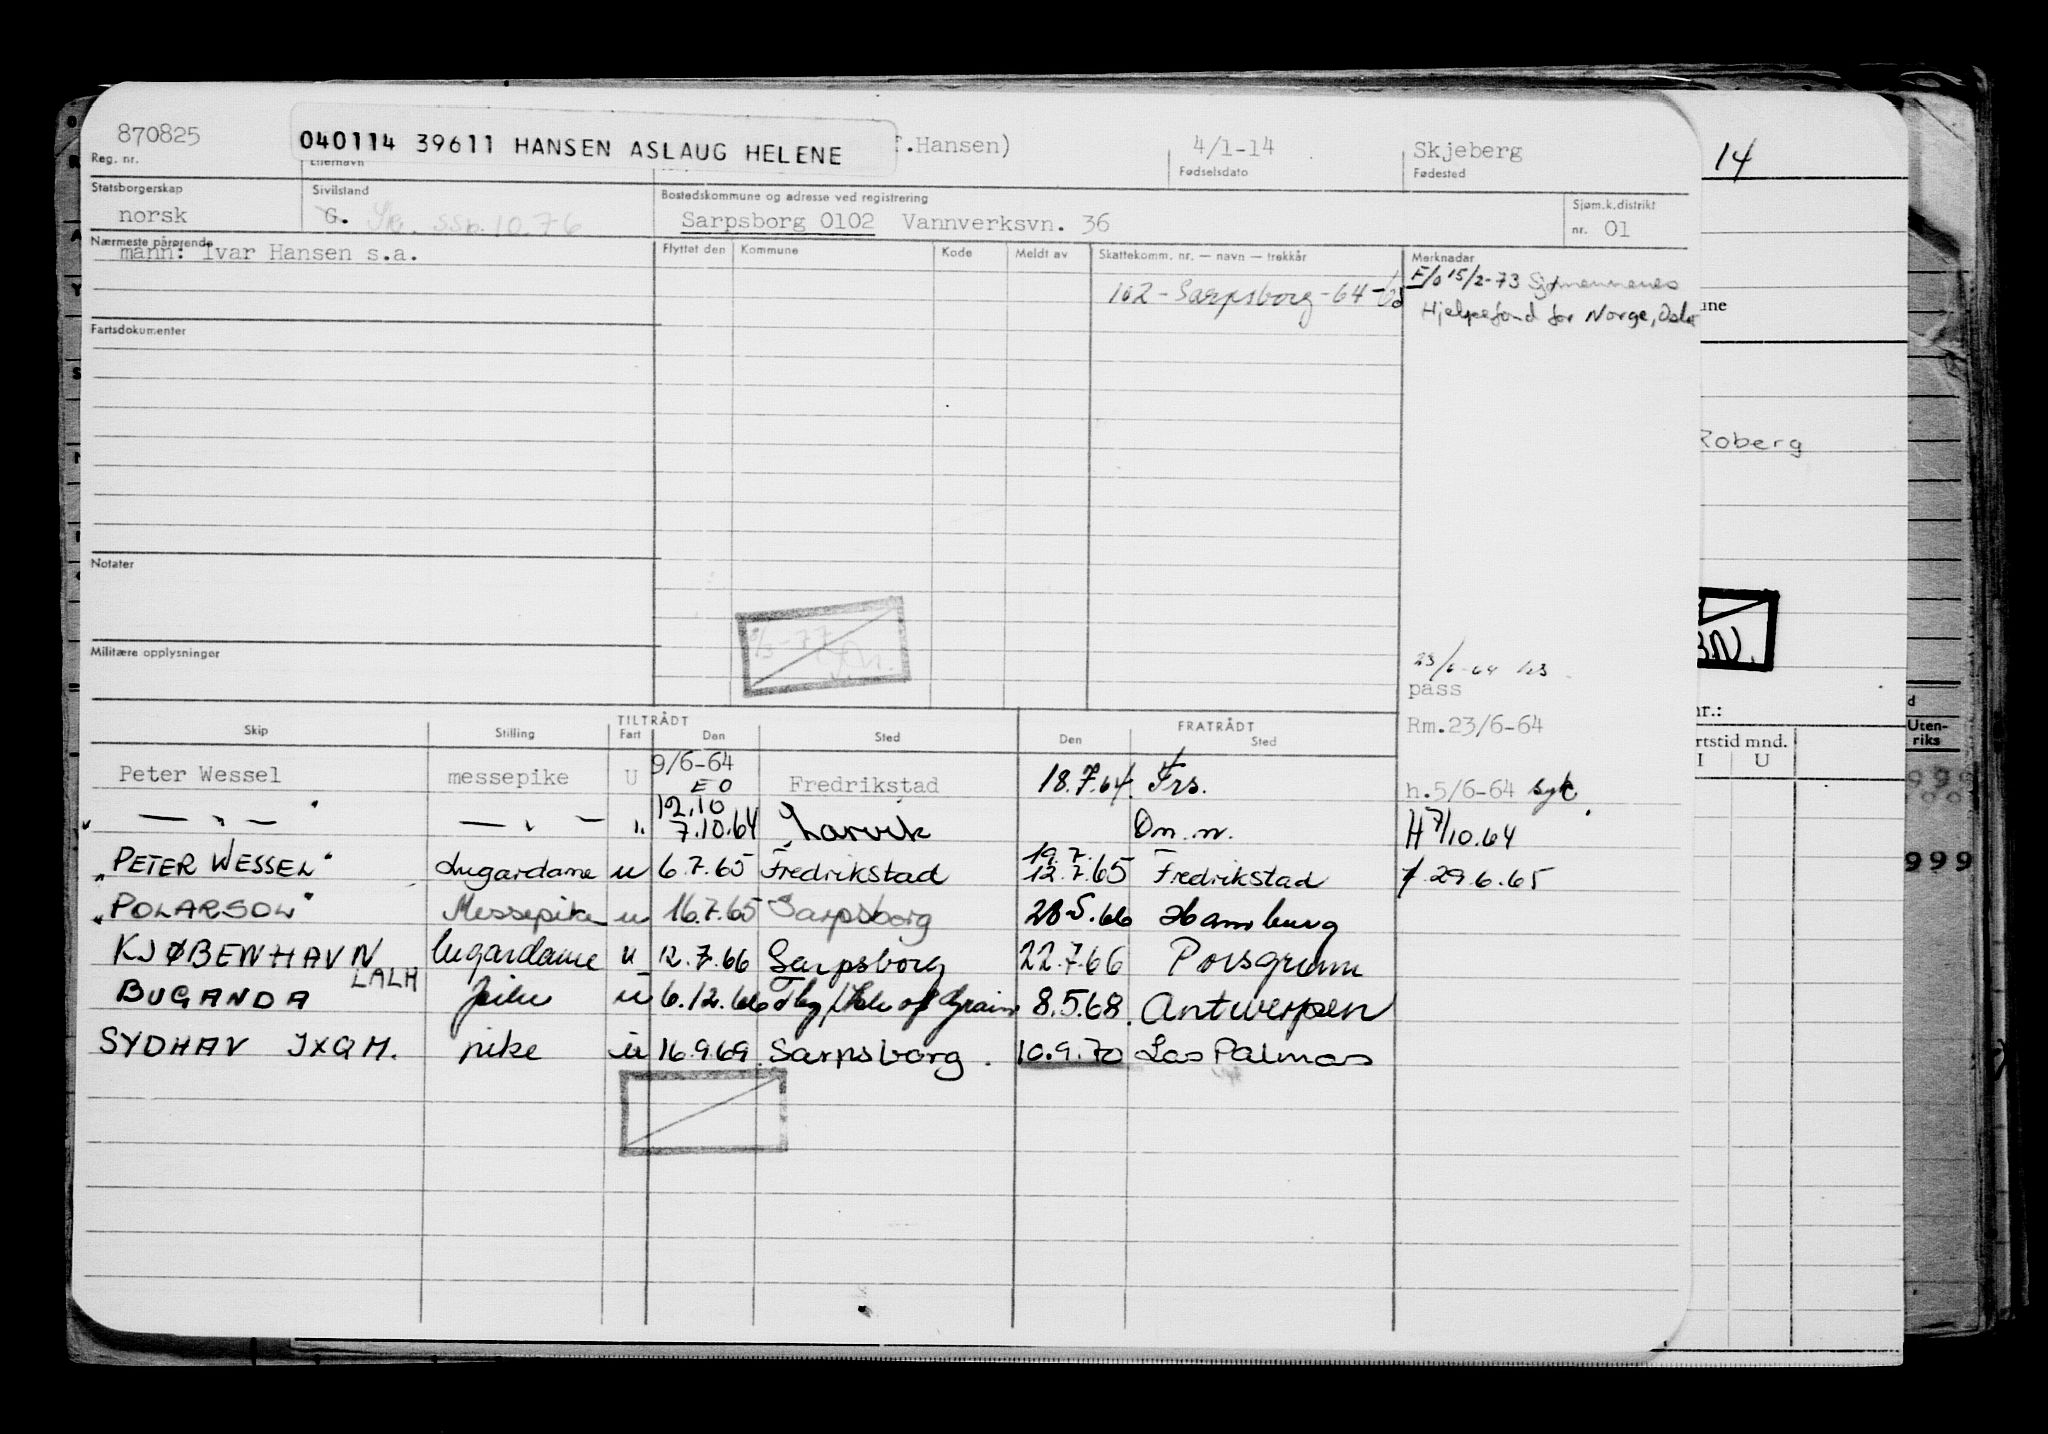 870825 040114 39611 HANSEN ASLAUG HELENE f.Hansen) 4/1-14 Skjeberg 14
Reg. nr. Etternavn Fødselsdato Fødested
Statsborgerskap Sivilstand Bostedskommune og adresse ved registrering Sjøm.k.distrikt
norsk G. Sarpsborg 0102 Vannverksvn. 36 nr. 01
Nærmeste pårørende Flyttet den Kommune Kode Meldt av Skattekomm. nr. — navn — trekkår Merknader
mann: Ivar Hansen s.a. F/o 15/2-73 Sjømennenes
102 - Sarpsborg - 64 - Hjelpefond for Norge, Oslo
Fartsdokumenter
Roberg
Notater
Militære opplysninger
23/6-64
pass
TILTRÅDT FRATRÅDT Rm.23/6-64
Skip Stilling Fart Den Sted Den Sted
Peter Wessel messepike U 9/6-64 EO Fredrikstad 18.7.64. Frs. h.5/6-64 syk
" — " — " — " — " 12.10 7.10.64 Larvik On.m. H 7/10.64
"PETER WESSEL" Lugardame u 6.7.65 Fredrikstad 19.7. 12.7.65 Fredrikstad 29.6.65
"POLARSOL" Messepike u 16.7.65 Sarpsborg 28.5.66 Hamburg
KJØBENHAVN lugardame u 12.7.66 Sarpsborg 22.7.66 Porsgrunn
BUGANDA LALH pike u 6.12.66 Fbg/Isle of Grain 8.5.68. Antwerpen
SYDHAV JXQM. pike u 16.9.69. Sarpsborg. 10.9.70 Las Palmas
nr.:
rtstid mnd.
I U
Uten-
riks
999
999